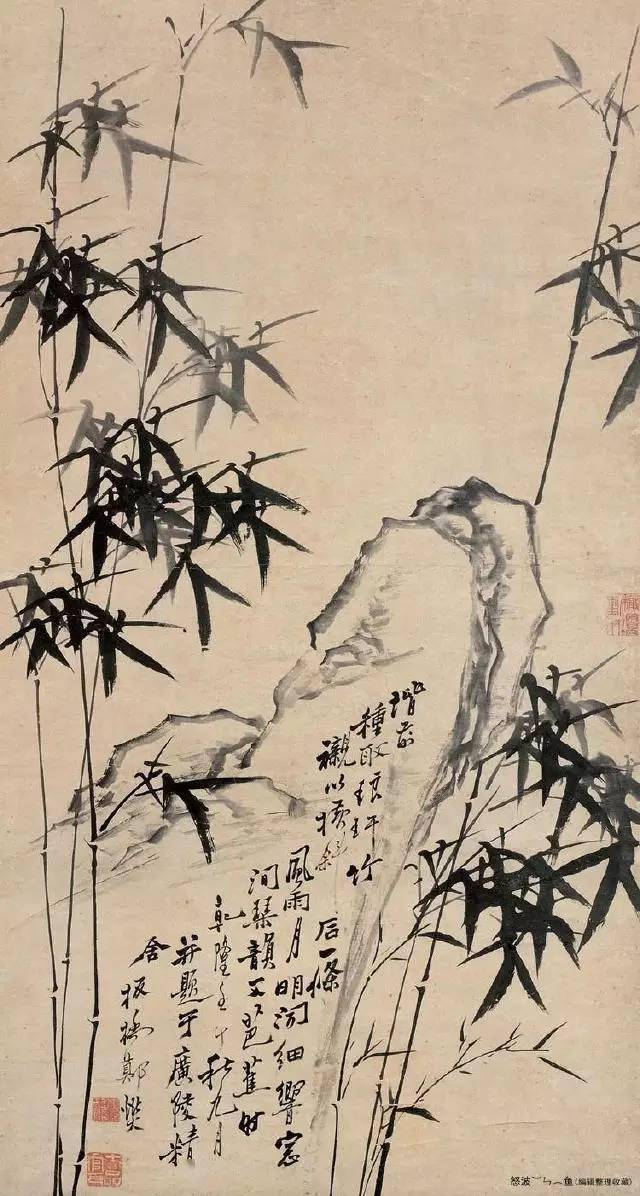 階前
種取琅玕竹
襯以橫斜
石一條
風雨月明聞細響窓
間琴韻又芭蕉時
乾隆壬午秋九月
并題于廣陵精
舍 板橋鄭燮
怒波 鱼(编辑整理收藏)